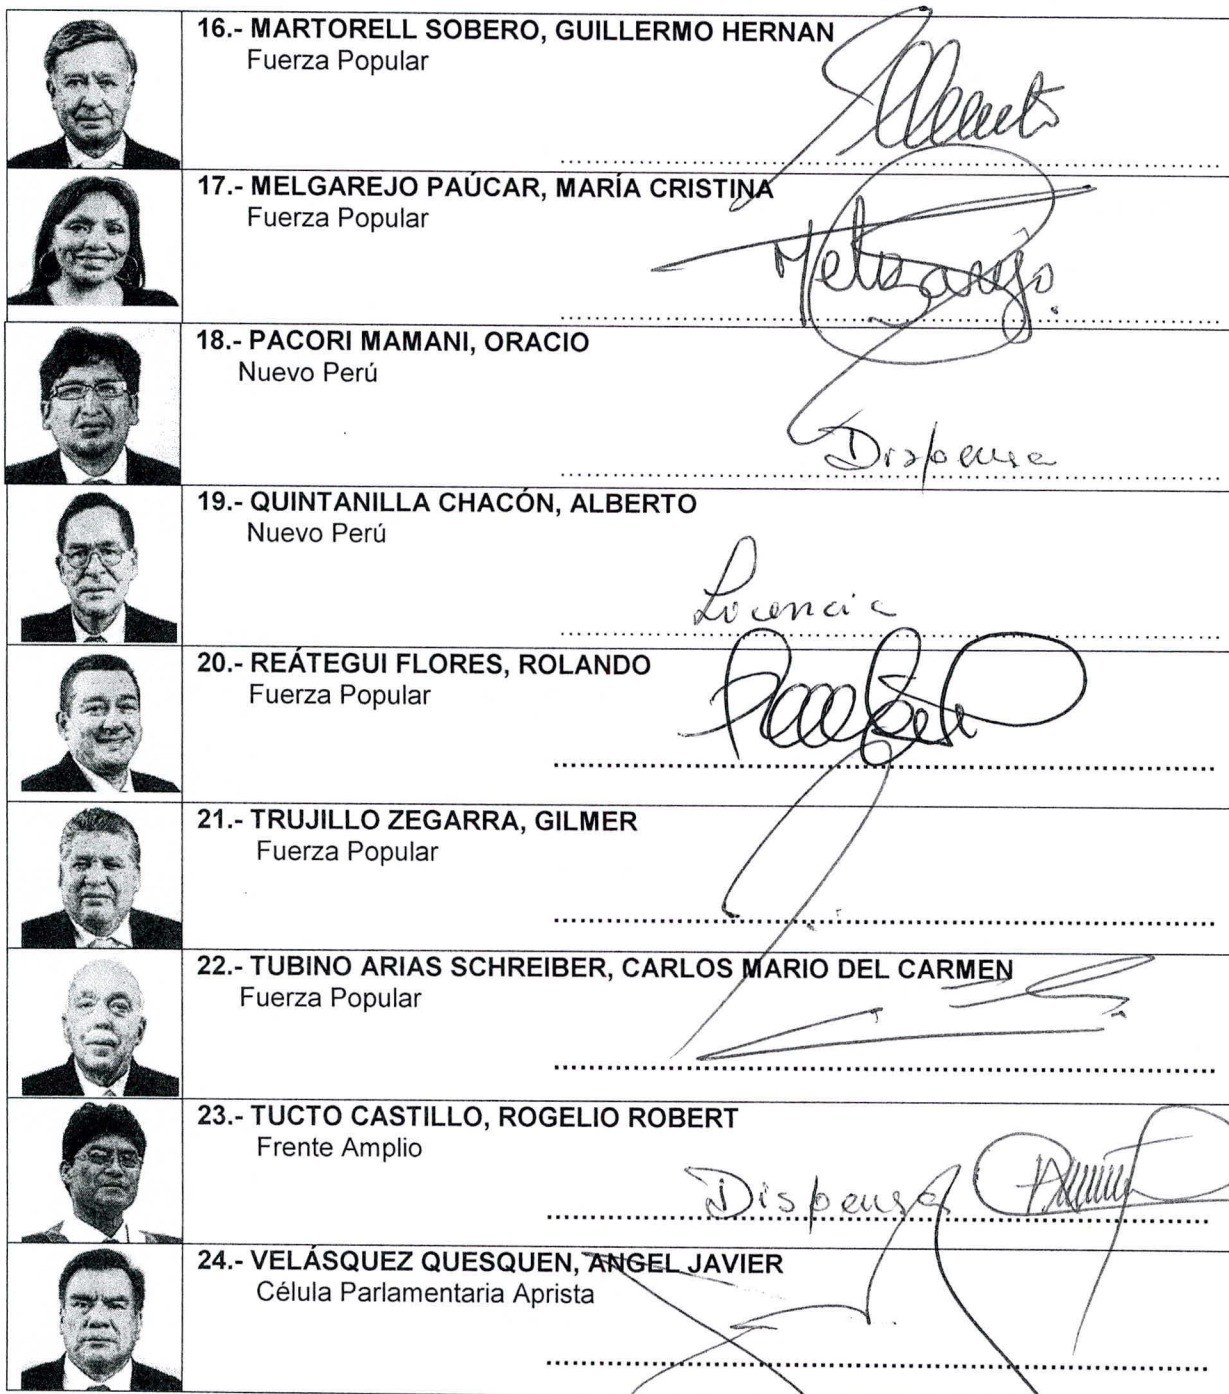 16.- MARTORELL SOBERO, GUILLERMO HERNAN
Fuerza Popular
17.- MELGAREJO PAÚCAR, MARÍA CRISTINA
Fuerza Popular
Melgarejo
18.- PACORI MAMANI, ORACIO
Nuevo Perú
Dispensa
19.- QUINTANILLA CHACÓN, ALBERTO
Nuevo Perú
Licencia
20.- REÁTEGUI FLORES, ROLANDO
Fuerza Popular
21.- TRUJILLO ZEGARRA, GILMER
Fuerza Popular
22.- TUBINO ARIAS SCHREIBER, CARLOS MARIO DEL CARMEN
Fuerza Popular
23.- TUCTO CASTILLO, ROGELIO ROBERT
Frente Amplio
Dispensa
24.- VELÁSQUEZ QUESQUEN, ANGEL JAVIER
Célula Parlamentaria Aprista